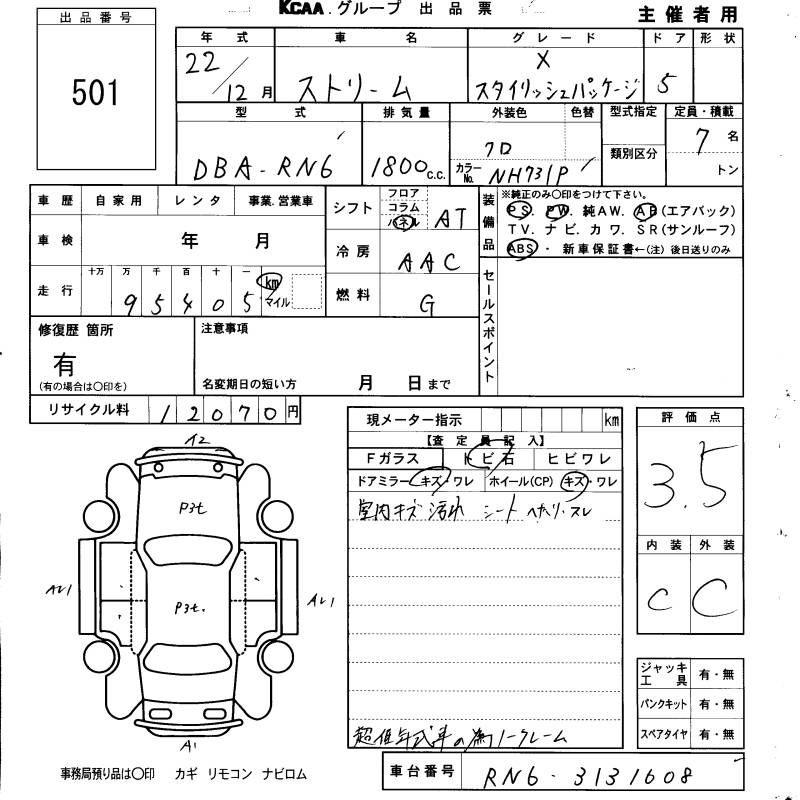 KCAA.グループ 出品票
主催者用
出品番号
501
年式 車名 グレード ドア 形状
22/12月 ストリーム X スタイリッシュパッケージ 5
型式 排気量 外装色 色替 型式指定 定員・積載
類別区分
DBA-RN6 1800c.c. クロ カラーNo. NH731P 7名
トン
車歴 自家用 レンタ 事業.営業車
車検 年 月
走行 十万 万 千 百 十 一
95405 km マイル
シフト フロア コラム パネル AT
冷房 AAC
燃料 G
装備品 ※純正のみ〇印をつけて下さい。
PS. PW. 純AW. AB(エアバック)
TV. ナビ. カワ. SR(サンルーフ)
ABS ・ 新車保証書←(注)後日送りのみ
セールスポイント
修復歴 箇所
有
(有の場合は〇印を)
注意事項
名変期日の短い方 月 日まで
リサイクル料 12070円
現メーター指示 km
【査定員記入】
Fガラス トビ石 ヒビワレ
ドアミラー キズ・ワレ ホイール(CP) キズ・ワレ
室内キズ 汚れ シート ヘタリ・スレ
超低年式車の為ノークレーム
評価点
3.5
内装 外装
C C
ジャッキ工具 有・無
パンクキット 有・無
スペアタイヤ 有・無
A2
P3t
P3t.
A1
事務局預り品は〇印 カギ リモコン ナビロム
車台番号 RN6-3131608